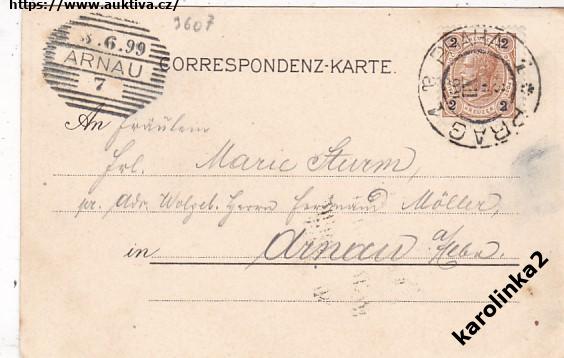 https://www.auktiva.cz/
3607
8.6.99
ARNAU
7
CORRESPONDENZ-KARTE.
2 2
2 2
PRAG 1 PRAHA 1
An Fräulein
Frl. Marie Sturm,
pr. Adr. Wolgeb. Herrn Ferdinand Möller,
in Arnau a/Elbe.
karolinka2